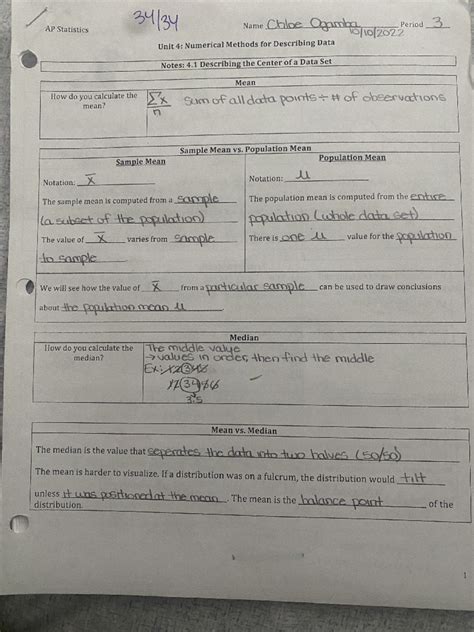 34/34
AP Statistics Name Chloe Ogamba Period 3
10/10/2022
Unit 4: Numerical Methods for Describing Data
Notes: 4.1 Describing the Center of a Data Set
Mean
How do you calculate the mean?
Σx
n
sum of all data points ÷ # of observations
Sample Mean vs. Population Mean
Sample Mean
Notation: x̄
The sample mean is computed from a sample
(a subset of the population)
The value of x̄ varies from sample
to sample
Population Mean
Notation: μ
The population mean is computed from the entire
population (whole data set)
There is one μ value for the population
We will see how the value of x̄ from a particular sample can be used to draw conclusions
about the population mean μ
Median
How do you calculate the
median?
The middle value
→ values in order, then find the middle
Ex:
3.5
Mean vs. Median
The median is the value that seperates the data into two halves (50/50)
The mean is harder to visualize. If a distribution was on a fulcrum, the distribution would tilt
unless it was positioned at the mean. The mean is the balance point of the
distribution.
1